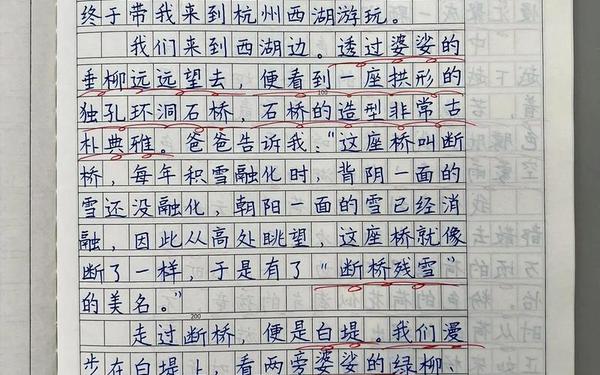 终于带我来到杭州西湖游玩。
我们来到西湖边。透过婆娑的
垂柳远远望去，便看到一座拱形的
独孔环洞石桥，石桥的造型非常古
朴典雅。爸爸告诉我："这座桥叫断
桥，每年积雪融化时，背阴一面的
雪还没融化，朝阳一面的雪已经消
融，因此从高处眺望，这座桥就像
断了一样，于是有了"断桥残雪"
的美名。"
走过断桥，便是白堤。我们漫
步在白堤上，看两旁婆娑的绿柳、